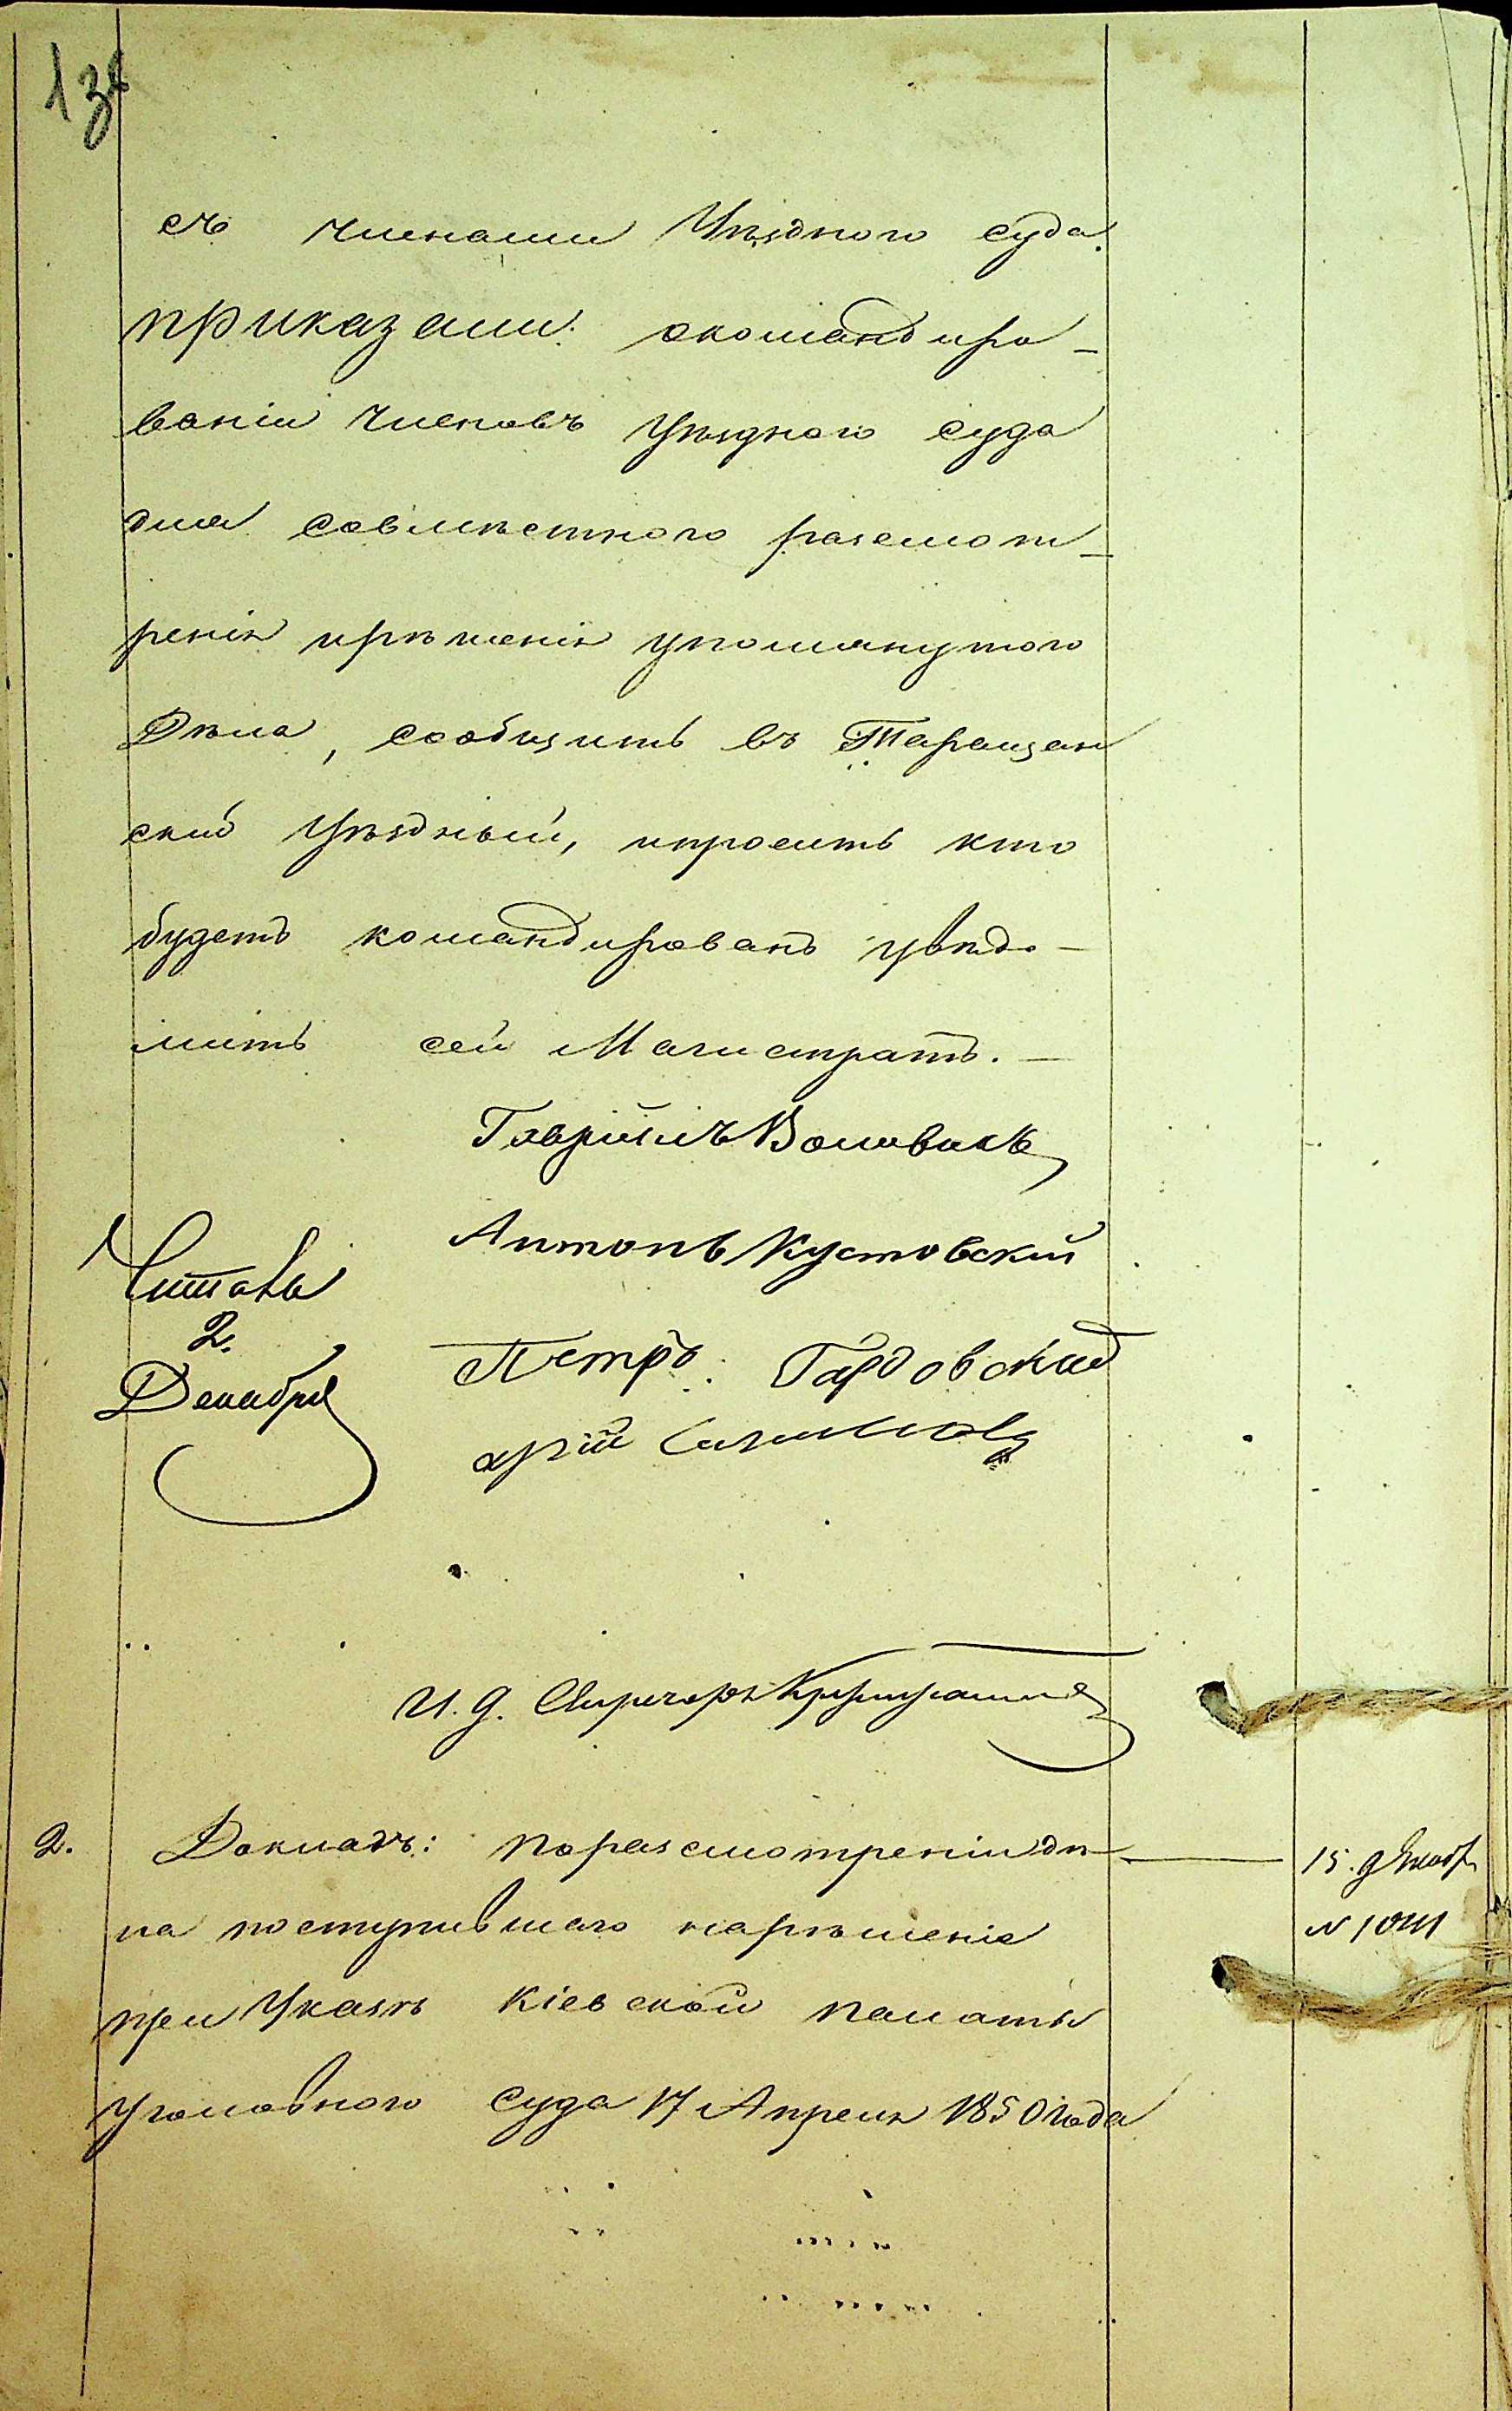 съ членами Уѣзднаго суда.
приказали: окомандиро-
ваніи Членовъ Уѣзднаго суда
для совмѣстнаго разсмот-
ренія ирѣшенія упомянутаго
Дѣла, сообщить въ Таращан
скій Уѣздный, ипросить кто
будетъ командированъ увѣдо-
мить сей Магистратъ. —
Гавріилъ Воловикъ
Антонъ Кустовскій
Читалъ
2.
Декабря
Петръ Гардовскій
И. д.
2. Докладъ: поразсмотреніи дѣ-
ла поступившаго нарѣшеніе
при Указѣ Кіевской палаты
уголовнаго Суда 17 Апреля 1850 года
15. декабр